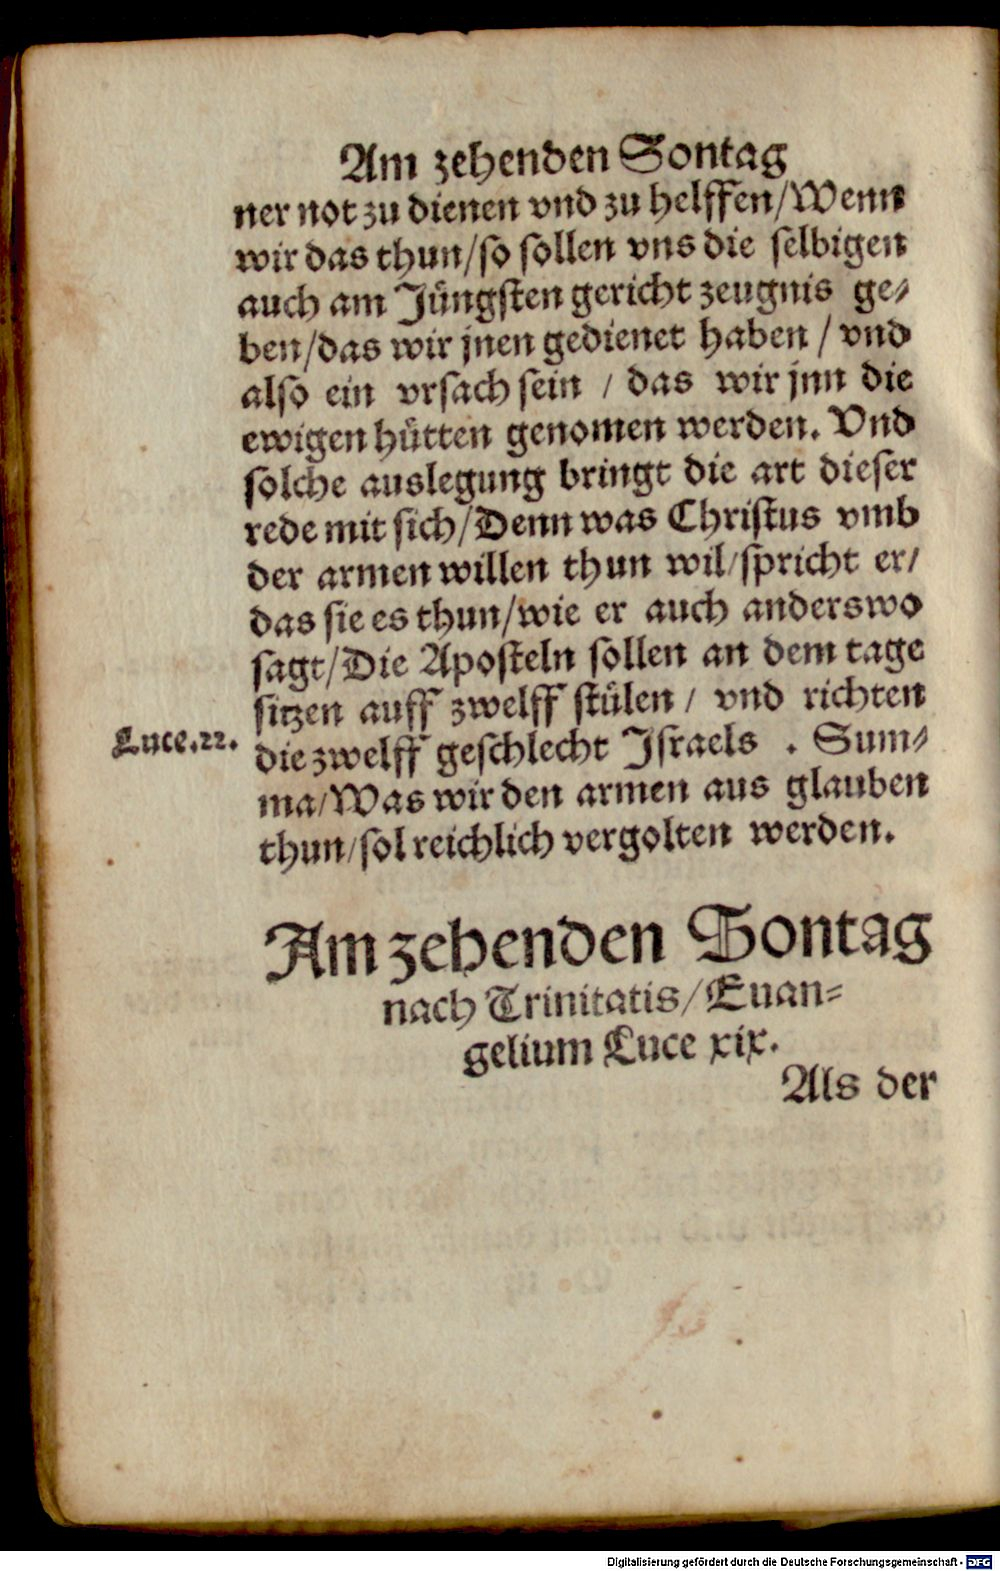 Am zehenden Sontag
ner not zu dienen vnd zu helffen/Wenn
wir das thun/so sollen vns die selbigen
auch am Jüngsten gericht zeugnis ge⸗
ben/das wir jnen gedienet haben / vnd
also ein vrsach sein / das wir jnn die
ewigen hütten genomen werden. Vnd
solche auslegung bringt die art dieser
rede mit sich/Denn was Christus vmb
der armen willen thun wil/spricht er/
das sie es thun/wie er auch anderswo
sagt/Die Aposteln sollen an dem tage
sitzen auff zwelff stülen / vnd richten
Luce.22.
die zwelff geschlecht Israels . Sum⸗
ma/Was wir den armen aus glauben
thun/sol reichlich vergolten werden.
Am zehenden Sontag
nach Trinitatis/Euan⸗
gelium Luce xix.
Als der
Digitalisierung gefördert durch die Deutsche Forschungsgemeinschaft - DFG